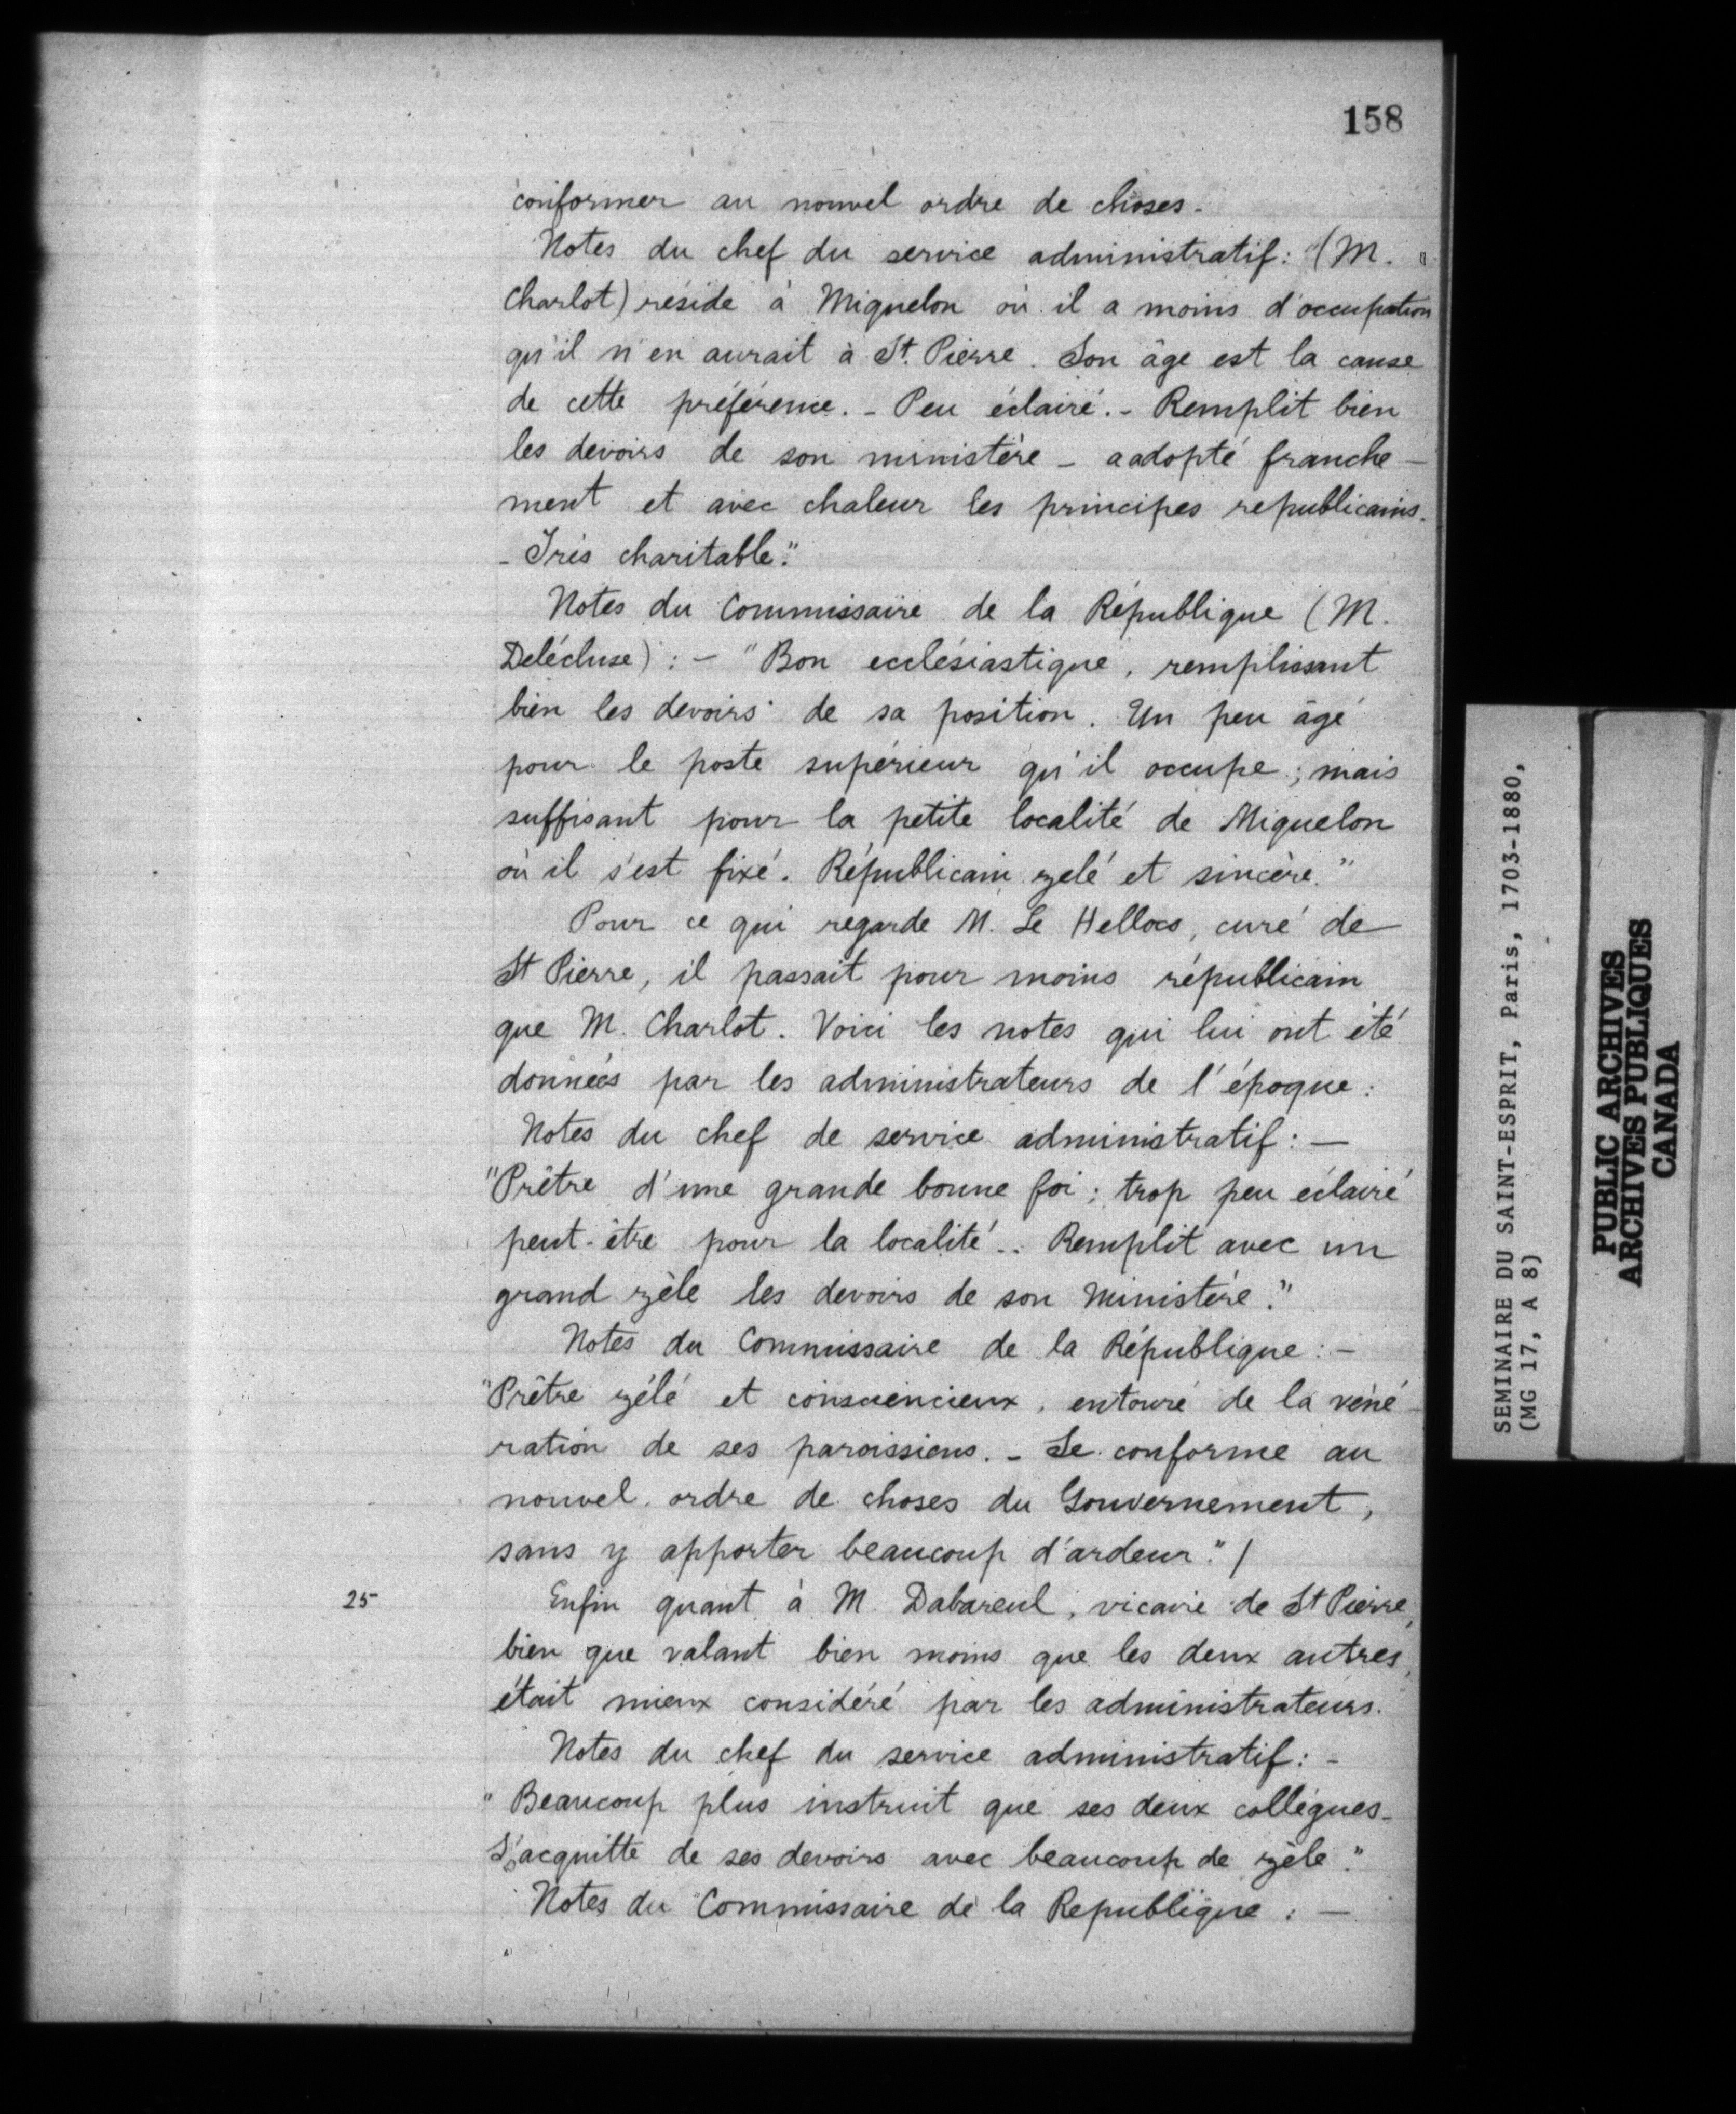 158
conformer au nouvel ordre de choses.
Notes du chef du service administratif: "(M.
Charlot) réside à Miquelon où il a moins d'occupation
qu'il n'en aurait à St. Pierre. Son âge est la cause
de cette préférence. - Peu éclairé. - Remplit bien
les devoirs de son ministère - a adopté franche-
ment et avec chaleur les principes republicains.
- Très charitable."
Notes du Commissaire de la République (M.
Delécluse) : - "Bon ecclésiastique, remplissant
bien les devoirs de sa position. Un peu âgé
pour le poste supérieur qu'il occupe ; mais
suffisant pour la petite localité de Miquelon
où il s'est fixé. Républicain zelé et sincère."
Pour ce qui regarde M. Le Hellocs, curé de
St Pierre, il passait pour moins républicain
que M. Charlot. Voici les notes qui lui ont été
données par les administrateurs de l'époque :
Notes du chef de service administratif : —
"Prêtre d'une grande bonne foi ; trop peu éclairé
peut-être pour la localité. . Remplit avec un
grand zèle les devoirs de son ministère."
Notes du Commissaire de la République : -
"Prêtre zélé et consciencieux, entouré de la véné-
ration de ses paroissiens. - Se conforme au
nouvel ordre de choses du Gouvernement,
sans y apporter beaucoup d'ardeur." /
25 Enfin quant à M. Dabareul, vicaire de St Pierre,
bien que valant bien moins que les deux autres,
était mieux considéré par les administrateurs.
Notes du chef du service administratif : -
"Beaucoup plus instruit que ses deux collègues-
S'acquitte de ses devoirs avec beaucoup de zèle."
Notes du Commissaire de la Republique : —
SEMINAIRE DU SAINT-ESPRIT, Paris, 1703-1880,
(MG 17, A 8)
PUBLIC ARCHIVES
ARCHIVES PUBLIQUES
CANADA